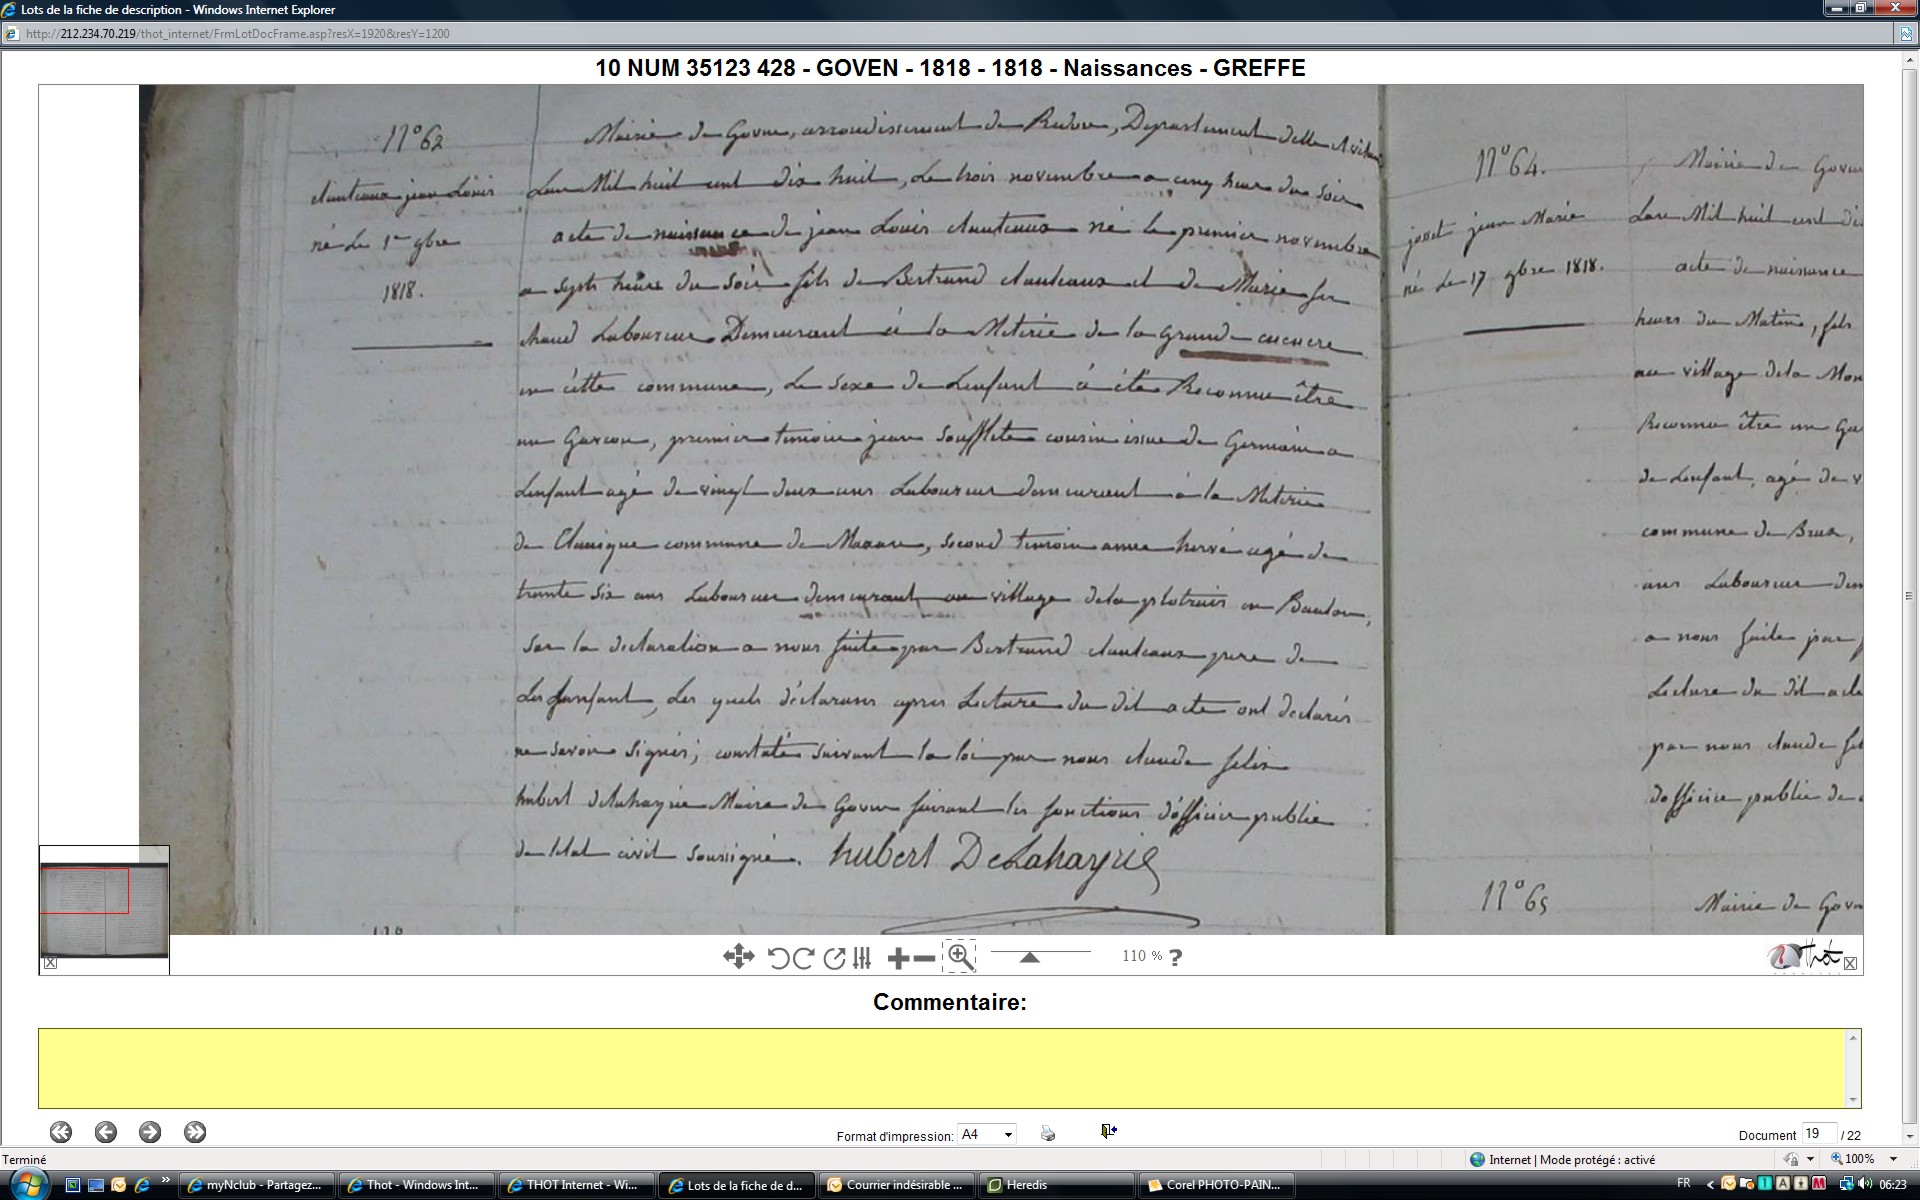 Lots de la fiche de description - Windows Internet Explorer
http://212.234.70.219/thot_internet/FrmLotDocFrame.asp?resX=1920&resY=1200
10 NUM 35123 428 - GOVEN - 1818 - 1818 - Naissances - GREFFE
N° 62
Clanteaux jean Louis
né Le 1er 9bre
1818.
Mairie de Goven, arrondissement de Redon, Departement delle
Lan Mil huit cent dix huit, Le trois novembre a cinq heure du soir
acte de naissance de jean Louis né le premier novembre
a septs heure du soir fils de Bertrand et de Marie
Laboureur Demeurant à la Metirie de la Grande
en cette commune, Le sexe de Lenfant à été Reconnu être
un Garcon, premier temoin jean Soufflete cousin issue de Germain a
Lenfant agé de vingt deux ans Laboureur demeurant a la Metirie
de commune de second temoin hervé agé de
trente six ans Laboureur demeurant au village dela en Baulon,
Sur la declaration a nous faite par Bertrand pere de
Lenfant, Les quels déclarans apres Lecture du dit acte ont declarés
ne savoir signés; constaté suivant la loi par nous claude felix
hubert delahayrie Maire de Goven faisant les fonctions d'officier public
de letat civil soussigné. hubert DeLahayrie
N° 64.
josset jean Marie
né Le 17 9bre 1818.
Mairie de Goven
Lan Mil huit cent di
acte de naissance
heurs du Matin, fils
au village dela Mon
Reconnu être un Ga
de Lenfant, agé de v
commune de Bruz,
ans Laboureur dem
a nous faite par
Lecture du dit acte
par nous claude fel
d'officier public de
N° 65
Mairie de Gove
110 % ?
Thot
Commentaire:
Format d'impression: A4
Document 19 / 22
Terminé
Internet | Mode protégé : activé
100%
myNclub - Partagez...
Thot - Windows Int...
THOT Internet - Wi...
Lots de la fiche de d...
Courrier indésirable ...
Heredis
Corel PHOTO-PAIN...
FR
06:23